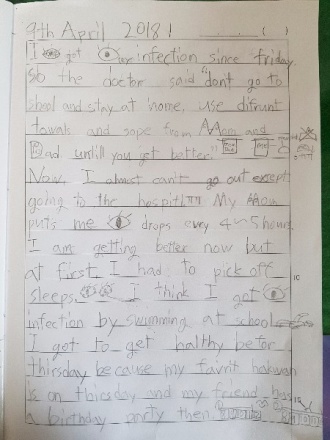 9th April 2018!
I got infection since friday.
so the doctor said "dont go to
shool and stay at home, use difrunt
towals and sope from Mom and
Dad untill you get better"
Now, I almost can't go out except
going to the hospitl!!! My Mom
puts me drops evry 4~5hours
I am getting better now but
at first I had to pick off
sleeps. I think I got
infection by swimming at school
I got to get halthy befor
thirsday because my favrit hakwon
is on thirsday and my friend has
a birthday party then.